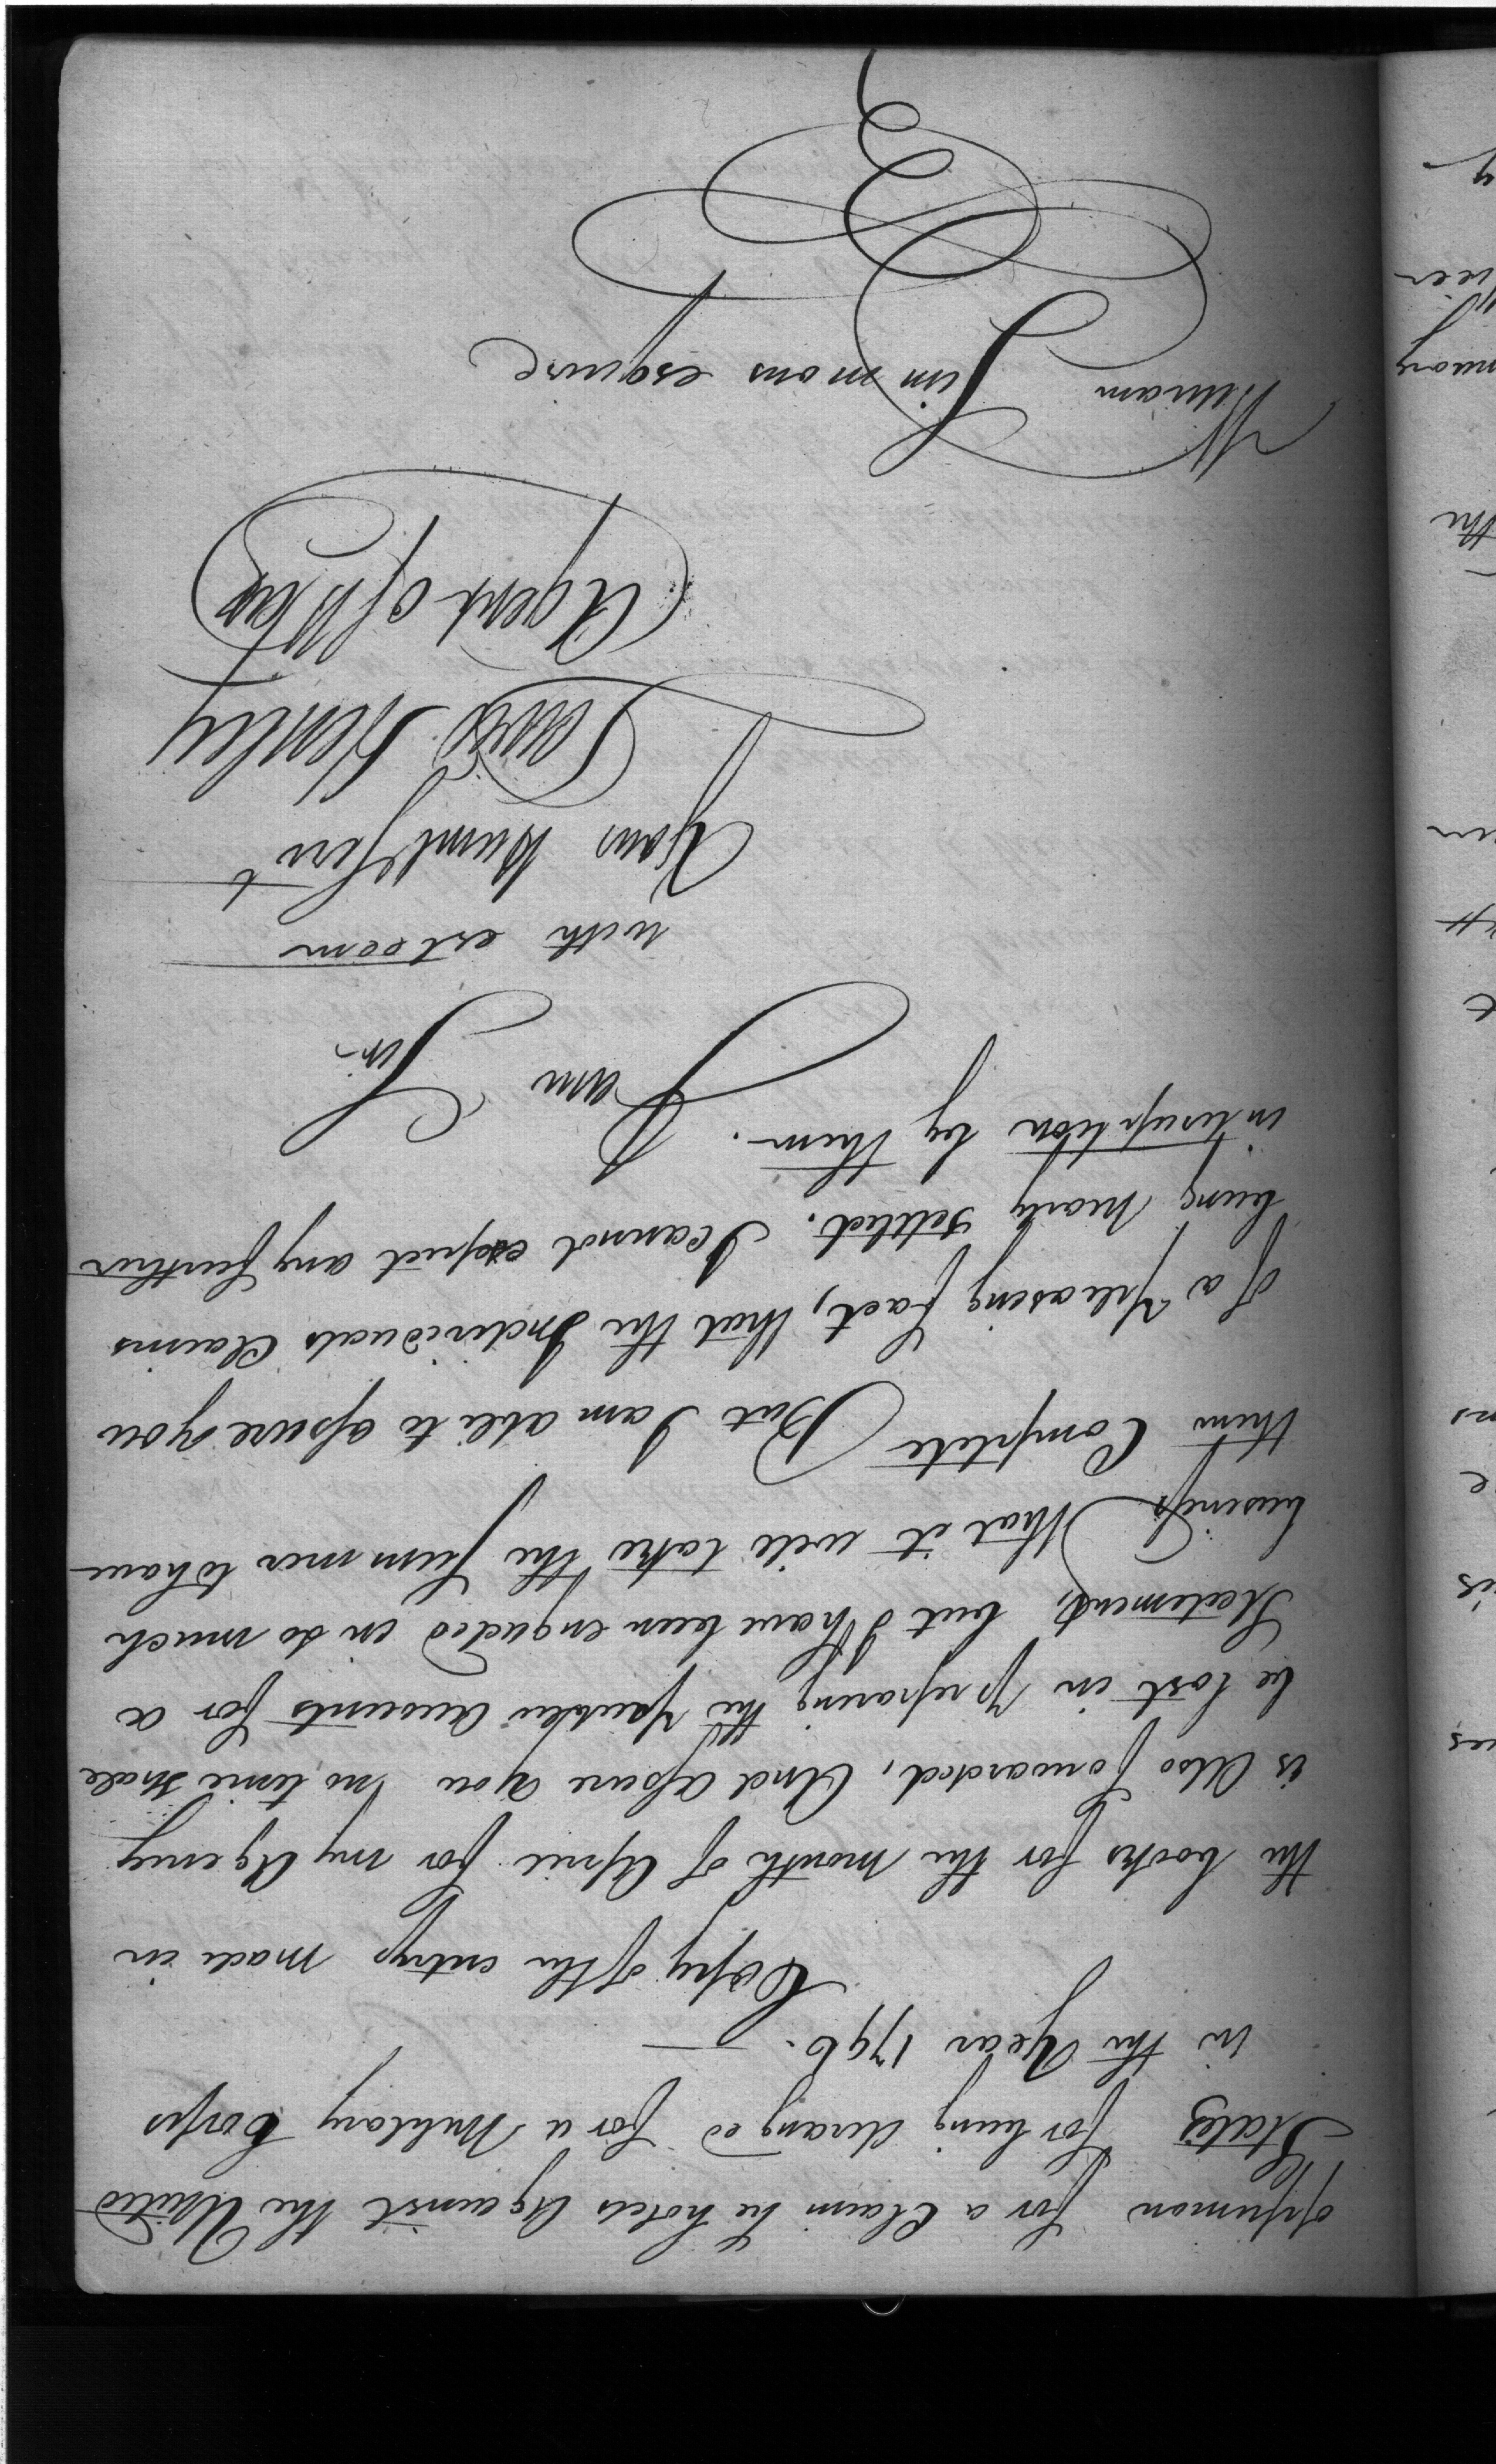 oppinion for a Claim he holds Against the United
States for being Arranged for a Military Corps
in the Year 1796. —
Copy of the entrys made in
the books for the month of April for my Agency
is Also forwarded, And assure you no time shall
be lost in preparing the publik Accounts for a
Statement, but I have been engaded in so much
business that it will take the Summer to have
them Complete But I am able to assure you
of a pleasing fact, that the Individuals Claims
being nearly settled. I cannot expect any further
interuption by them.
I am Sir
with esteem
Your Humbl Servt
David Henley
Agent of War
William Simmons esquire